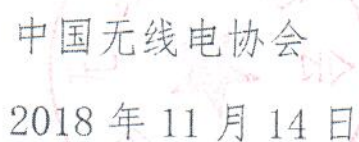 中国无线电协会
2018 年 11 月 14 日